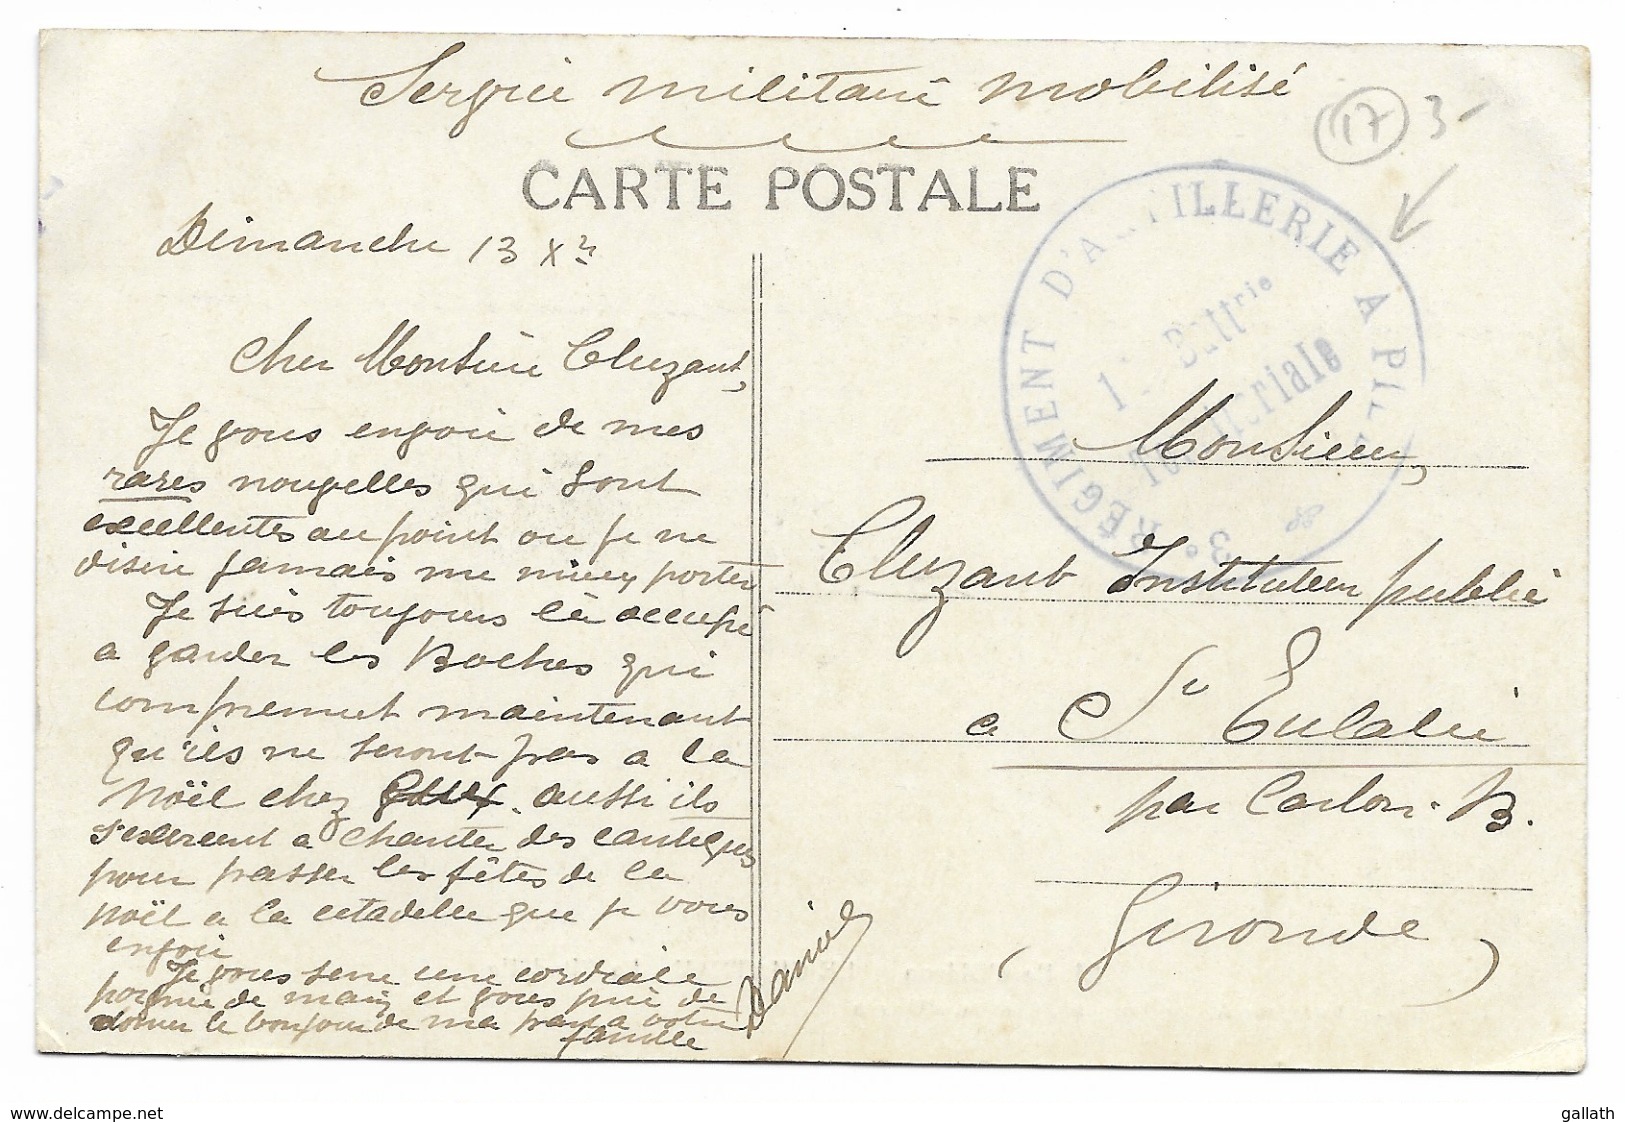 Service militaire mobilisé
17 3
CARTE POSTALE
Dimanche 13 Xbre
Cher Monsieur Cluzant,
Je vous envoie de mes
rares nouvelles qui sont
excellentes au point ou je ne
désire jamais me mieux porter
Je suis toujours là occupé
a garder les Boches qui
comprennent maintenant
qu'ils ne seront pas a la
Noël chez eux. aussi ils
s'exercent a chanter des cantiques
pour passer les fêtes de la
Noël a la citadelle que je vous
envoie
Je vous serre une cordiale
poignée de main et vous prie de
donner le bonjour de ma part a votre
famille
Daniel
3e RÉGIMENT D'ARTILLERIE A PIED
Battrie
Territoriale
Monsieur,
Cluzant Instituteur public
a Ste Eulalie
par Carbon-B.
(Gironde)
www.delcampe.net
gallath